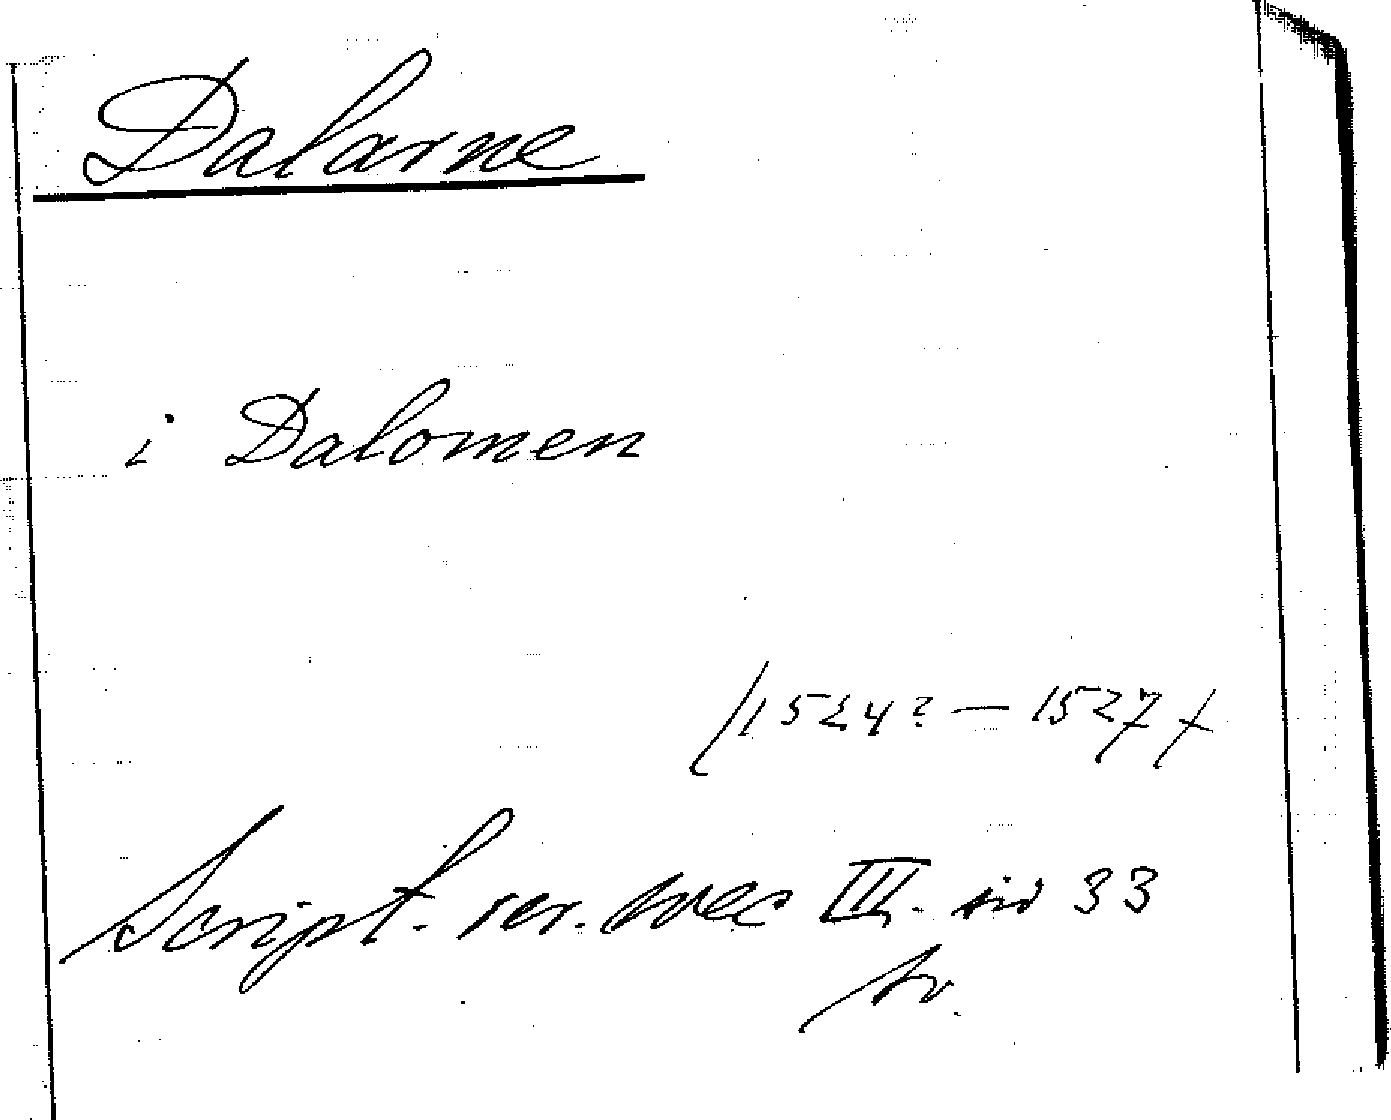 Dalarne
i Dalomen
/1524? — 1527/
Script. rer. svec III. sid 33
sv.